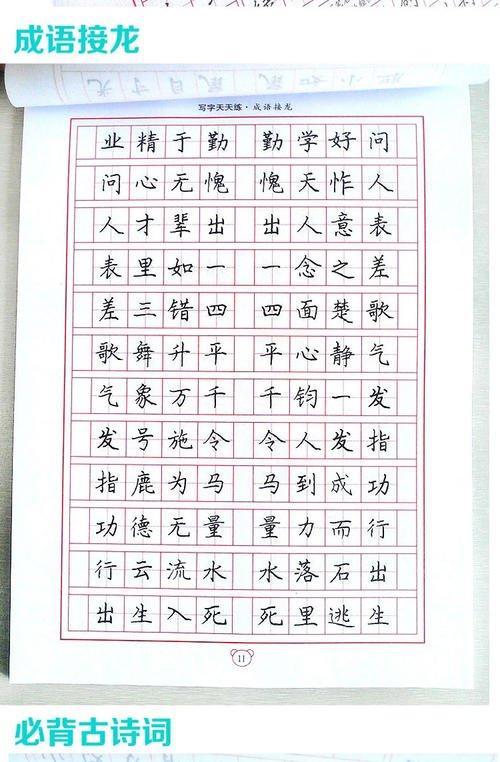 成语接龙
写字天天练·成语接龙
业精于勤 勤学好问
问心无愧 愧天怍人
人才辈出 出人意表
表里如一 一念之差
差三错四 四面楚歌
歌舞升平 平心静气
气象万千 千钧一发
发号施令 令人发指
指鹿为马 马到成功
功德无量 量力而行
行云流水 水落石出
出生入死 死里逃生
11
必背古诗词